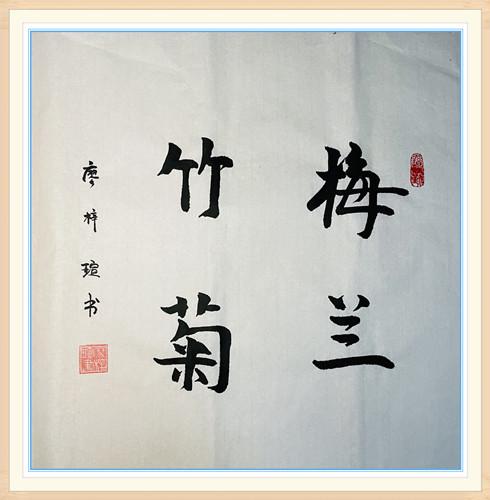 梅兰
竹菊
廖梓瑄书